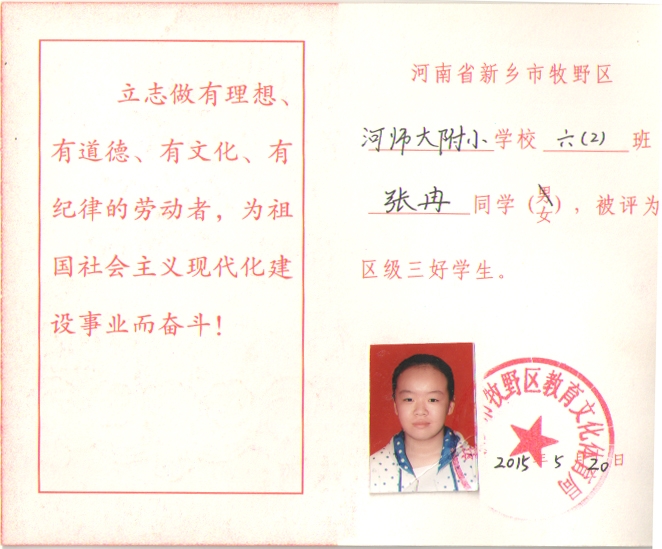 立志做有理想、
有道德、有文化、有
纪律的劳动者，为祖
国社会主义现代化建
设事业而奋斗！
河南省新乡市牧野区
河师大附小学校 六(2) 班
张冉 同学（男女），被评为
区级三好学生。
市牧野区教育文化体育局
2015年5月20日